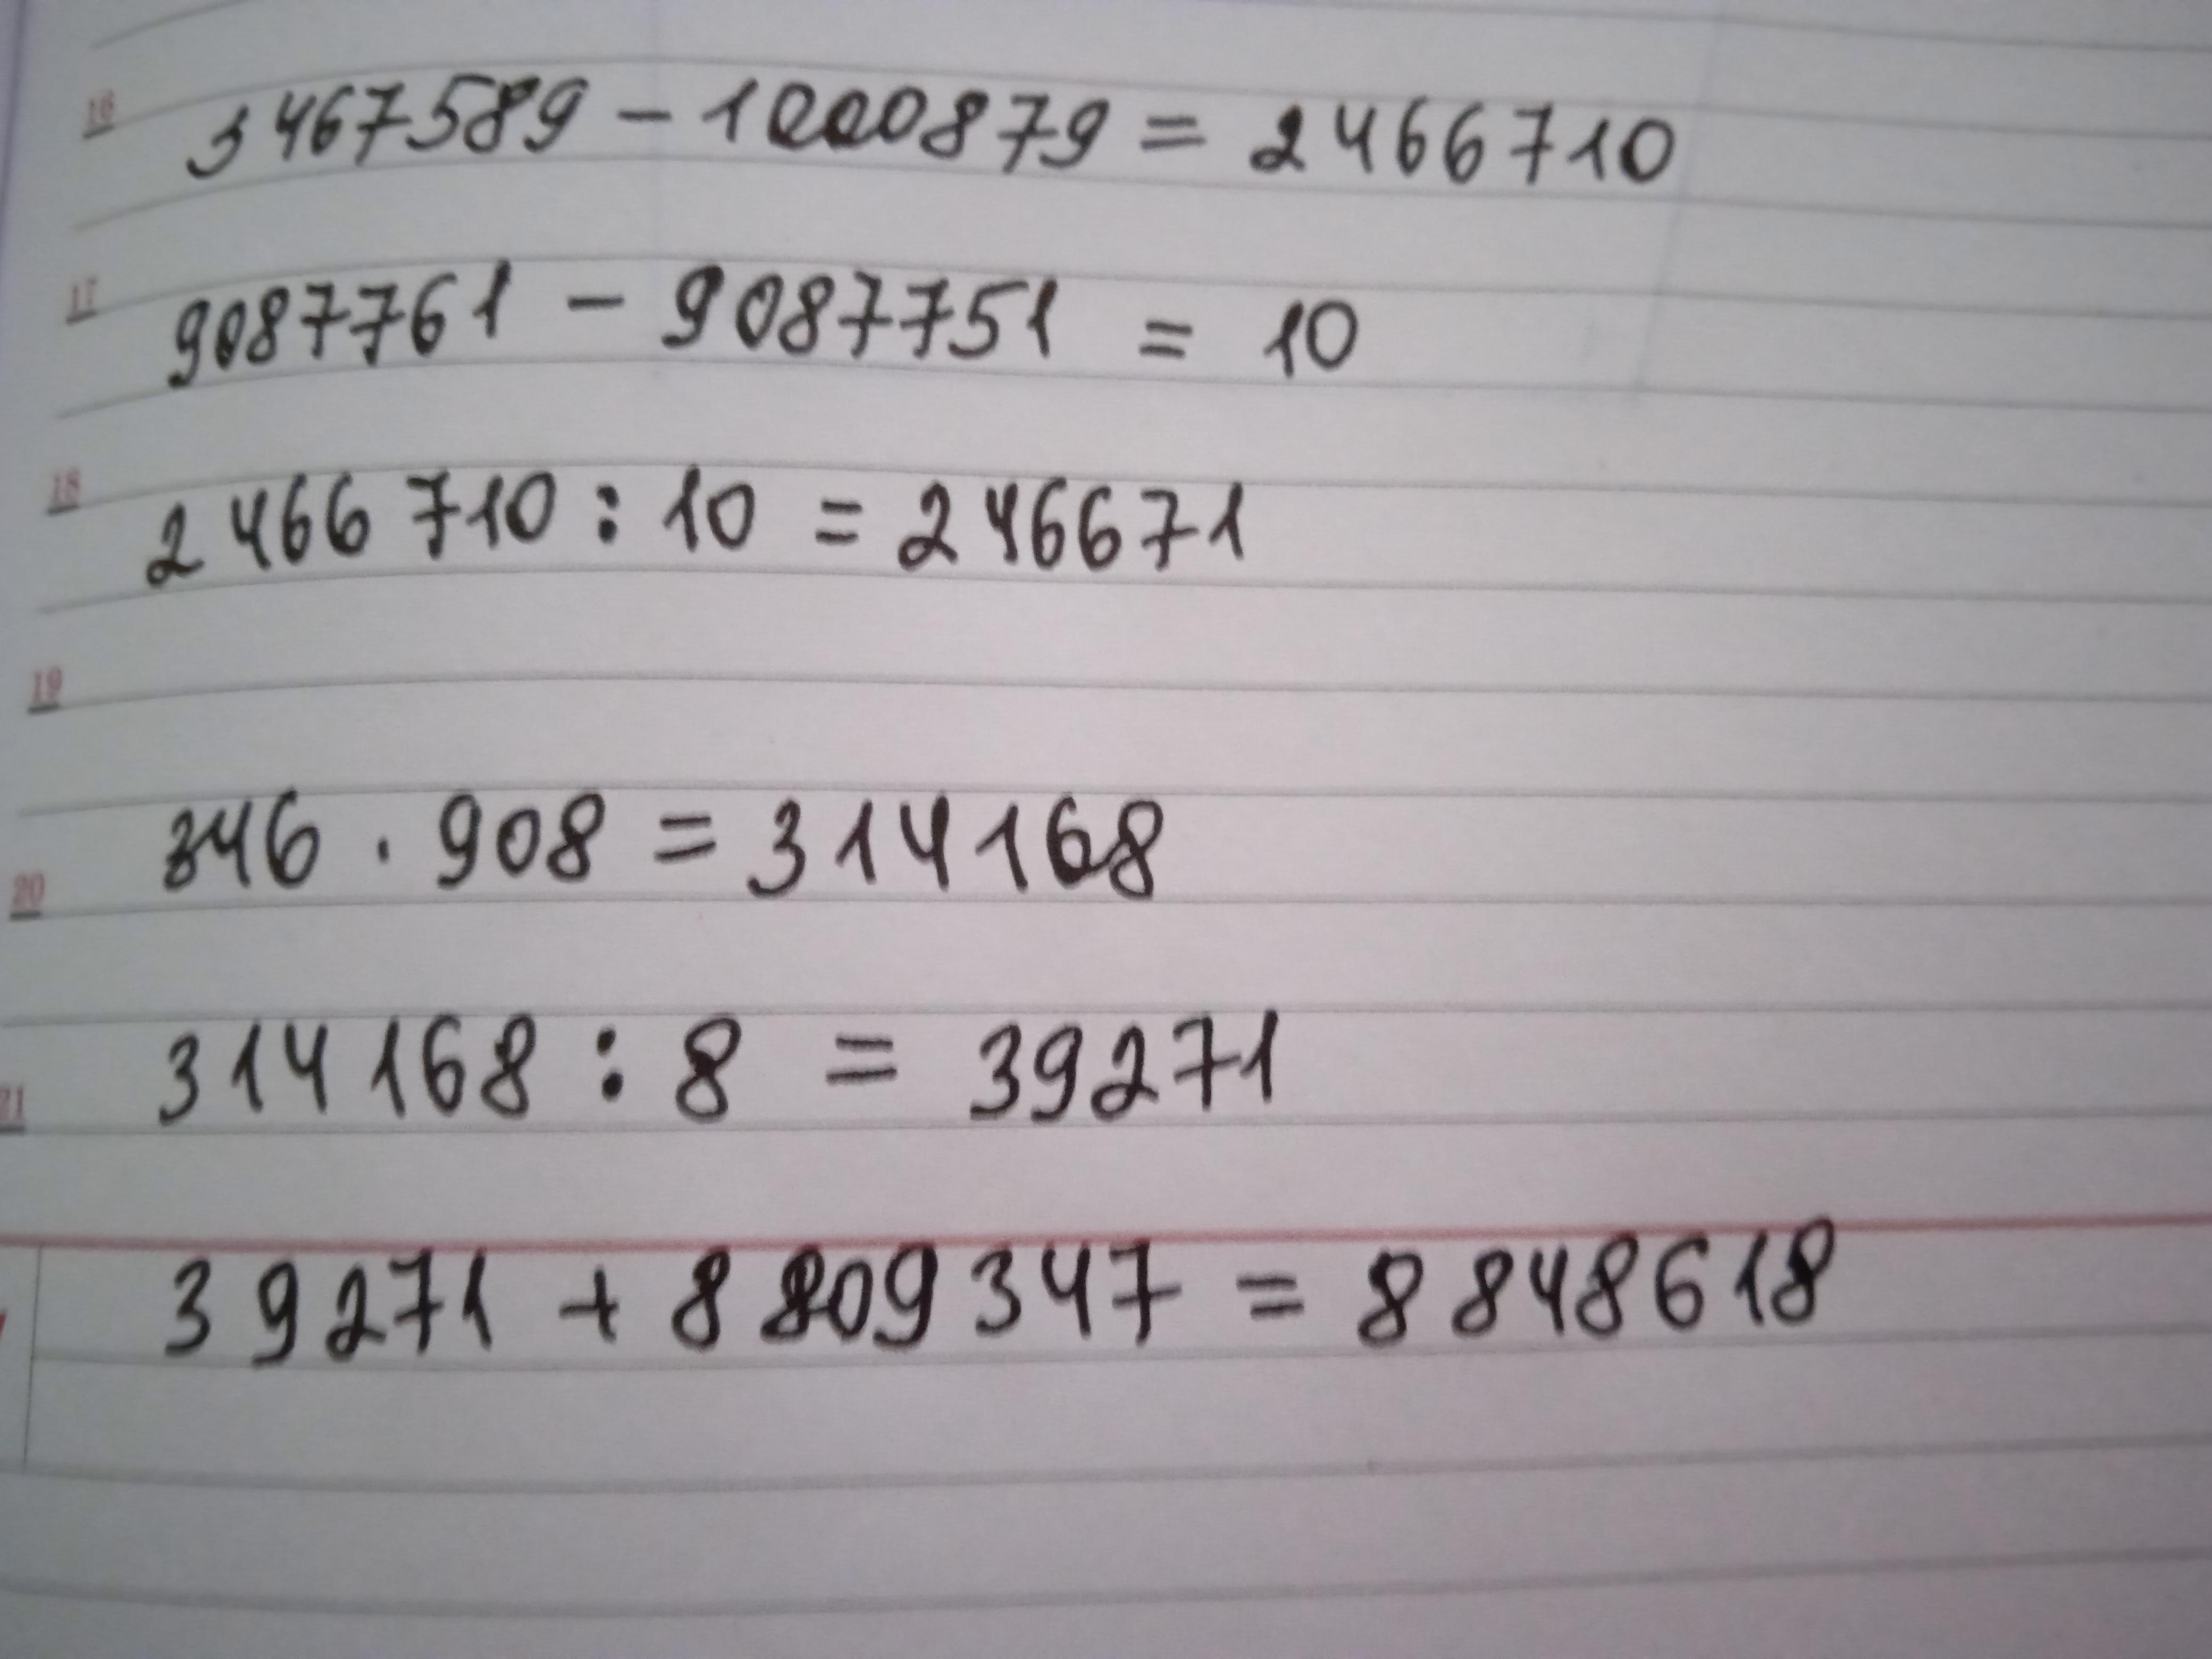 16 3467589 - 1000879 = 2466710
17 9087761 - 9087751 = 10
18 2466710 : 10 = 246671
19
20 346 · 908 = 314168
21 314168 : 8 = 39271
39271 + 8809347 = 8848618